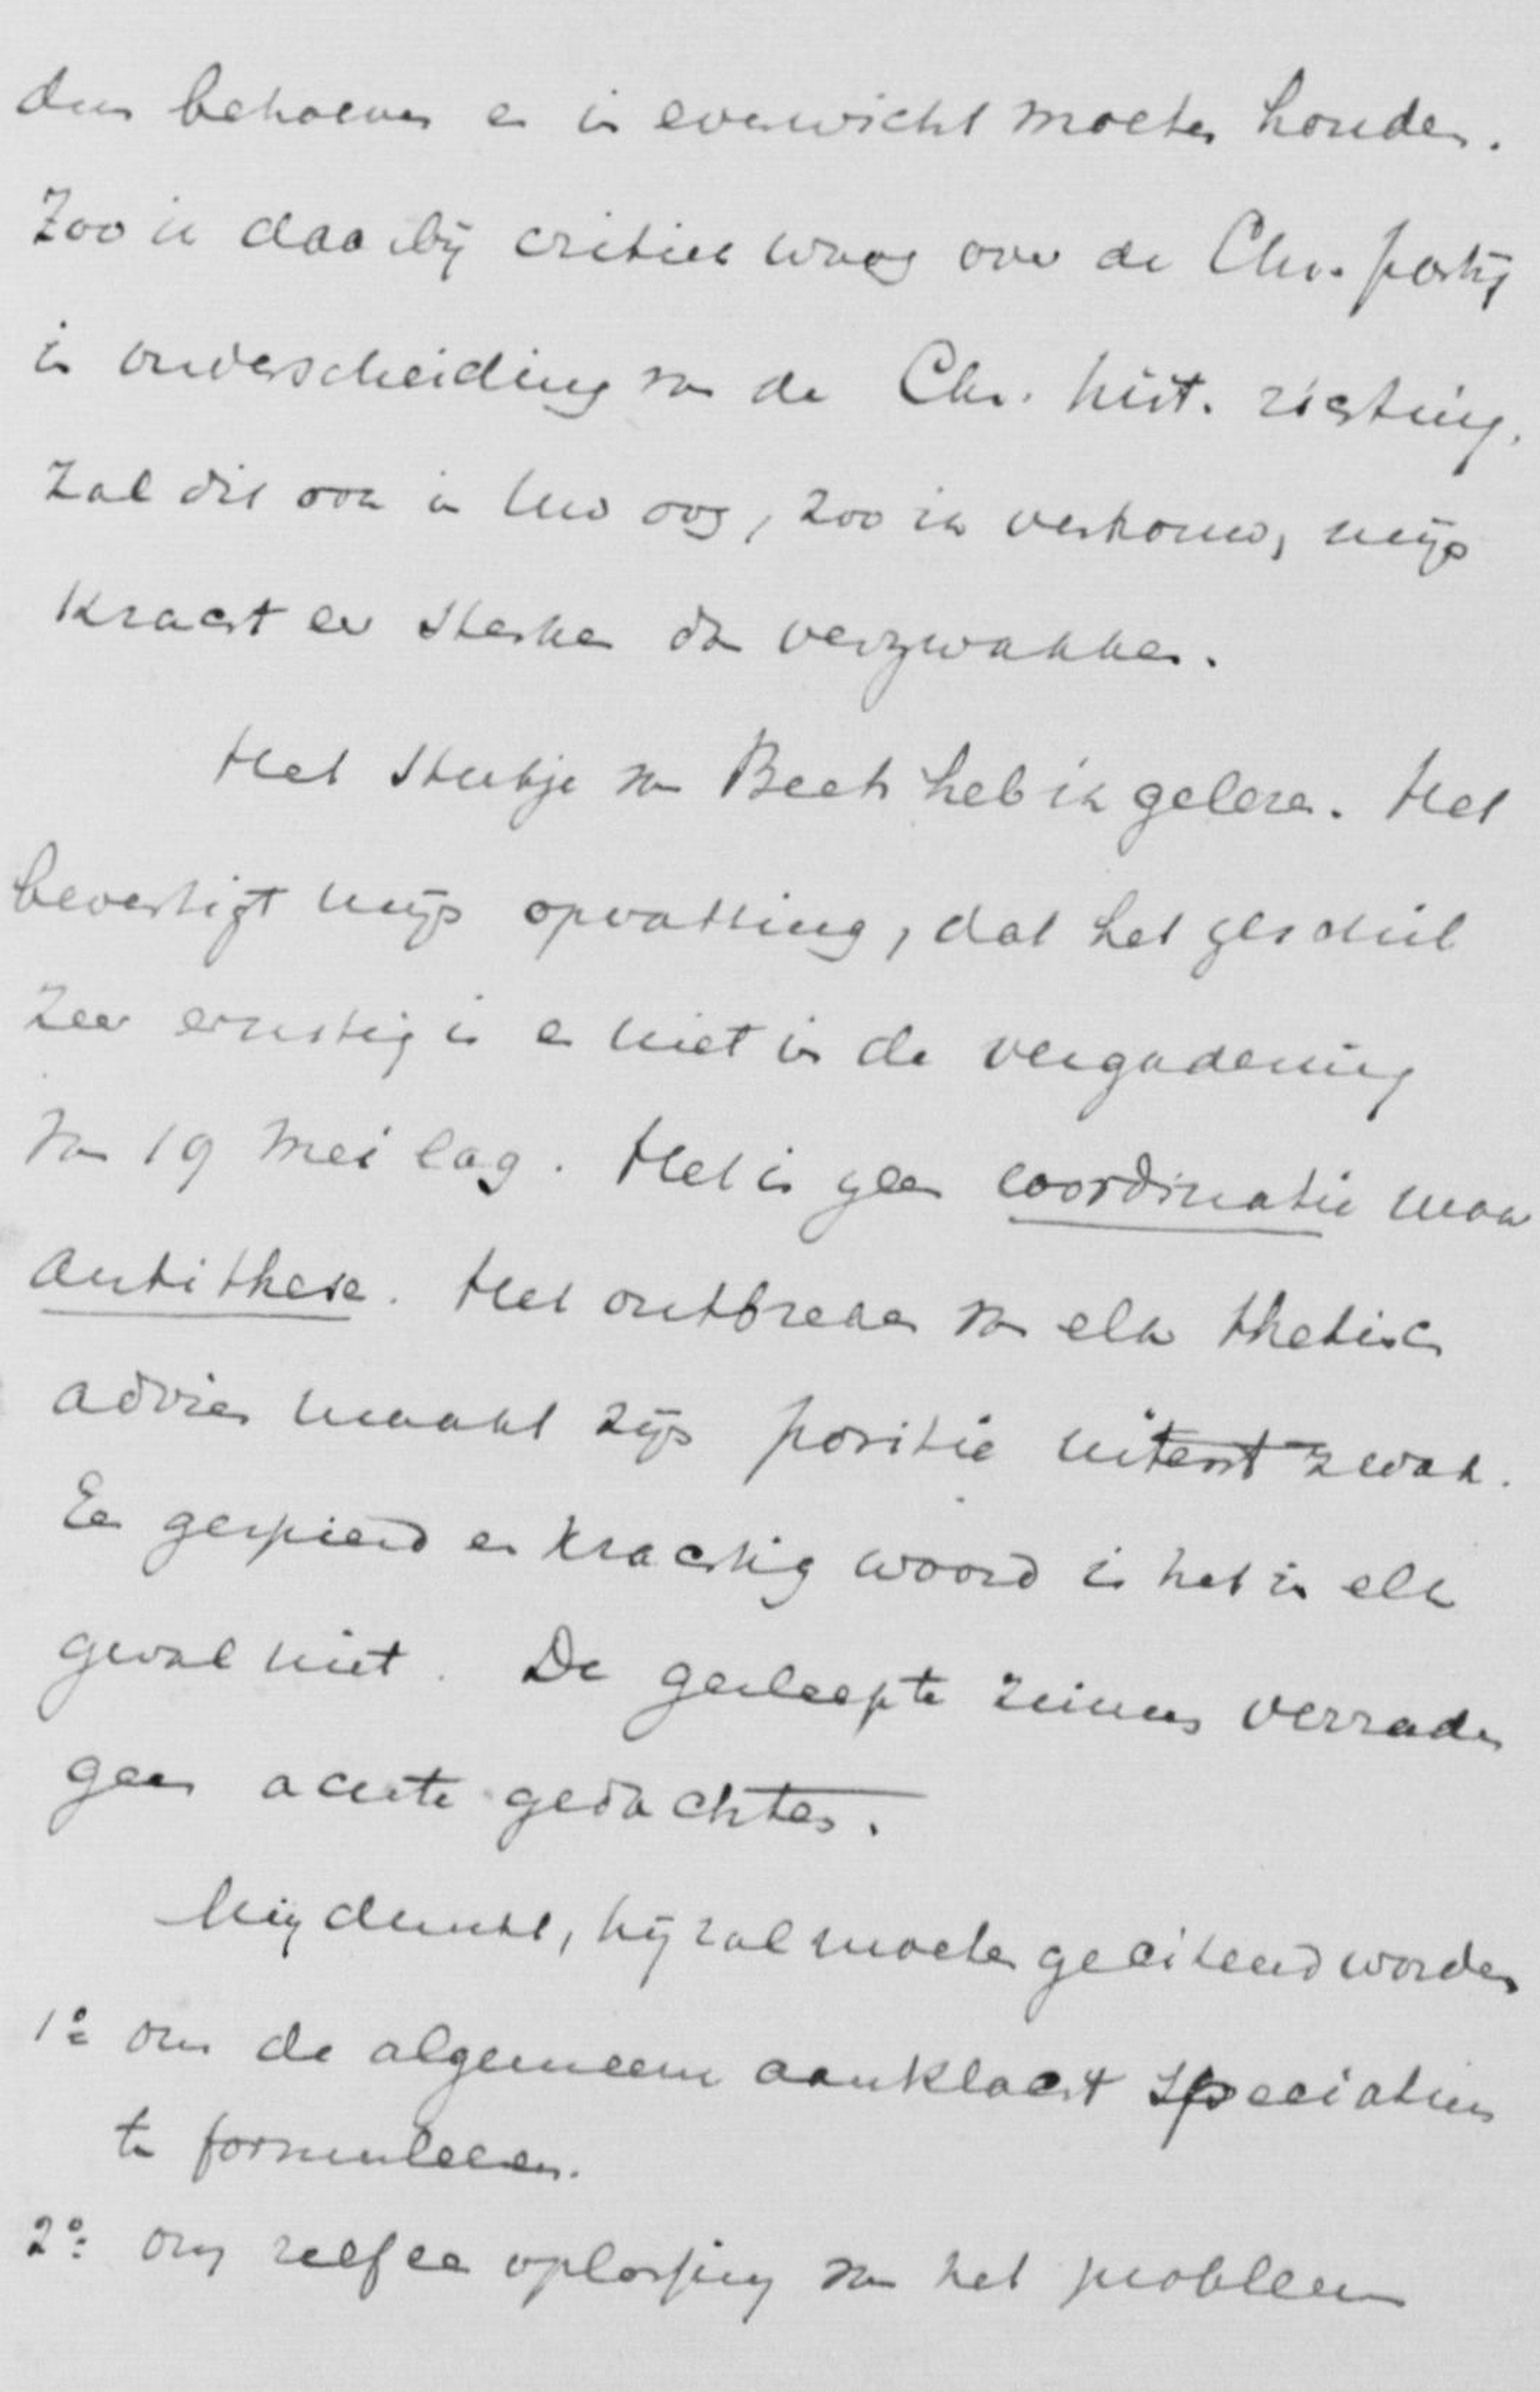 den behoeven en in evenwicht moeten houden.
Zoo ik daarbij critiek waag over de Chr. partij
in onderscheiding van de Chr. hist. richting,
zal dit ook in Uw oog, zoo ik vertrouw, mijn
kracht eer sterken dan verzwakken.
Het stukje van Beets heb ik gelezen. Het
bevestigt mijn opvatting, dat het geschil
zeer ernstig is en niet in de vergadering
van 19 Mei lag. Het is geen coordinatie maar
antithese. Het ontbreken van elk thetisch
advies maakt zijn positie uiterst zwak.
Een gespierd en krachtig woord is het in elk
geval niet. De gesleepte zinnen verraden
geen acute gedachten.
Mij dunkt, hij zal moeten geciteerd worden
1o om de algemeene aanklacht specialius
te formuleeren.
2o: om zelf een oplossing van het probleem